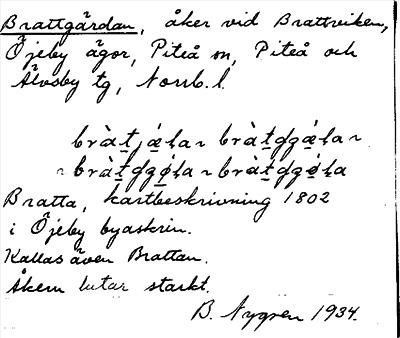 Brattgärdan, åker vid Brattviken,
Öjeby ägor, Piteå sn, Piteå och
Älvsby tg, Norrb. l.
Bratta, kartbeskrivning 1802
i Öjeby byaskrin.
Kallas även Brattan.
Åkern lutar starkt.
B. Nygren 1934.